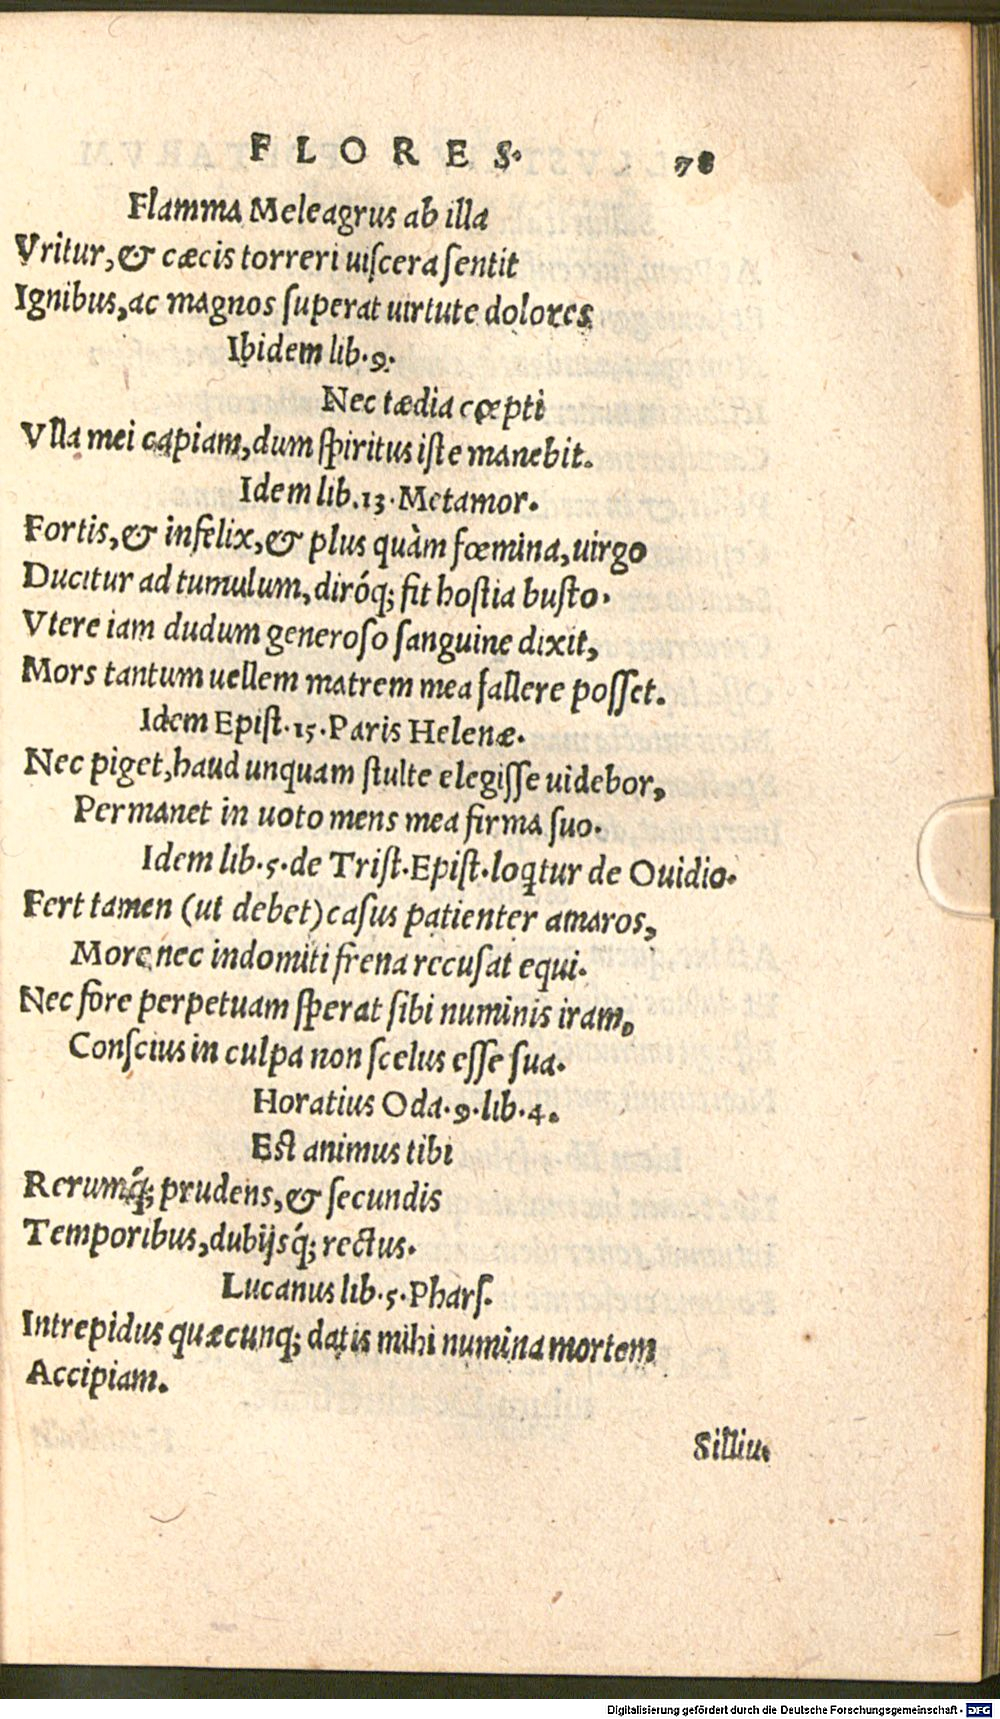 FLORES. 78
Flamma Meleagrus ab illa
Vritur, & cæcis torreri uiſcera ſentit
Ignibus, ac magnos ſuperat uirtute dolores
Ibidem lib. 9.
Nec tædia cœpti
Vlla mei capiam, dum ſpiritus iſte manebit.
Idem lib. 13. Metamor.
Fortis, & infelix, & plus quàm fœmina, uirgo
Ducitur ad tumulum, diróq; fit hoſtia buſto.
Vtere iam dudum generoſo ſanguine dixit,
Mors tantum uellem matrem mea fallere poſſet.
Idem Epiſt. 15. Paris Helenæ.
Nec piget, haud unquam ſtulte elegiſſe uidebor,
Permanet in uoto mens mea firma ſuo.
Idem lib. 5. de Triſt. Epiſt. loq̃tur de Ouidio.
Fert tamen (ut debet) caſus patienter amaros,
More nec indomiti frena recuſat equi.
Nec fore perpetuam ſperat ſibi numinis iram,
Conſcius in culpa non ſcelus eſſe ſua.
Horatius Oda. 9. lib. 4.
Eſt animus tibi
Rerumq́; prudens, & ſecundis
Temporibus, dubijsq́; rectus.
Lucanus lib. 5. Pharſ.
Intrepidus quæcunq; datis mihi numina mortem
Accipiam.
Silliu.
Digitalisierung gefördert durch die Deutsche Forschungsgemeinschaft - DFG